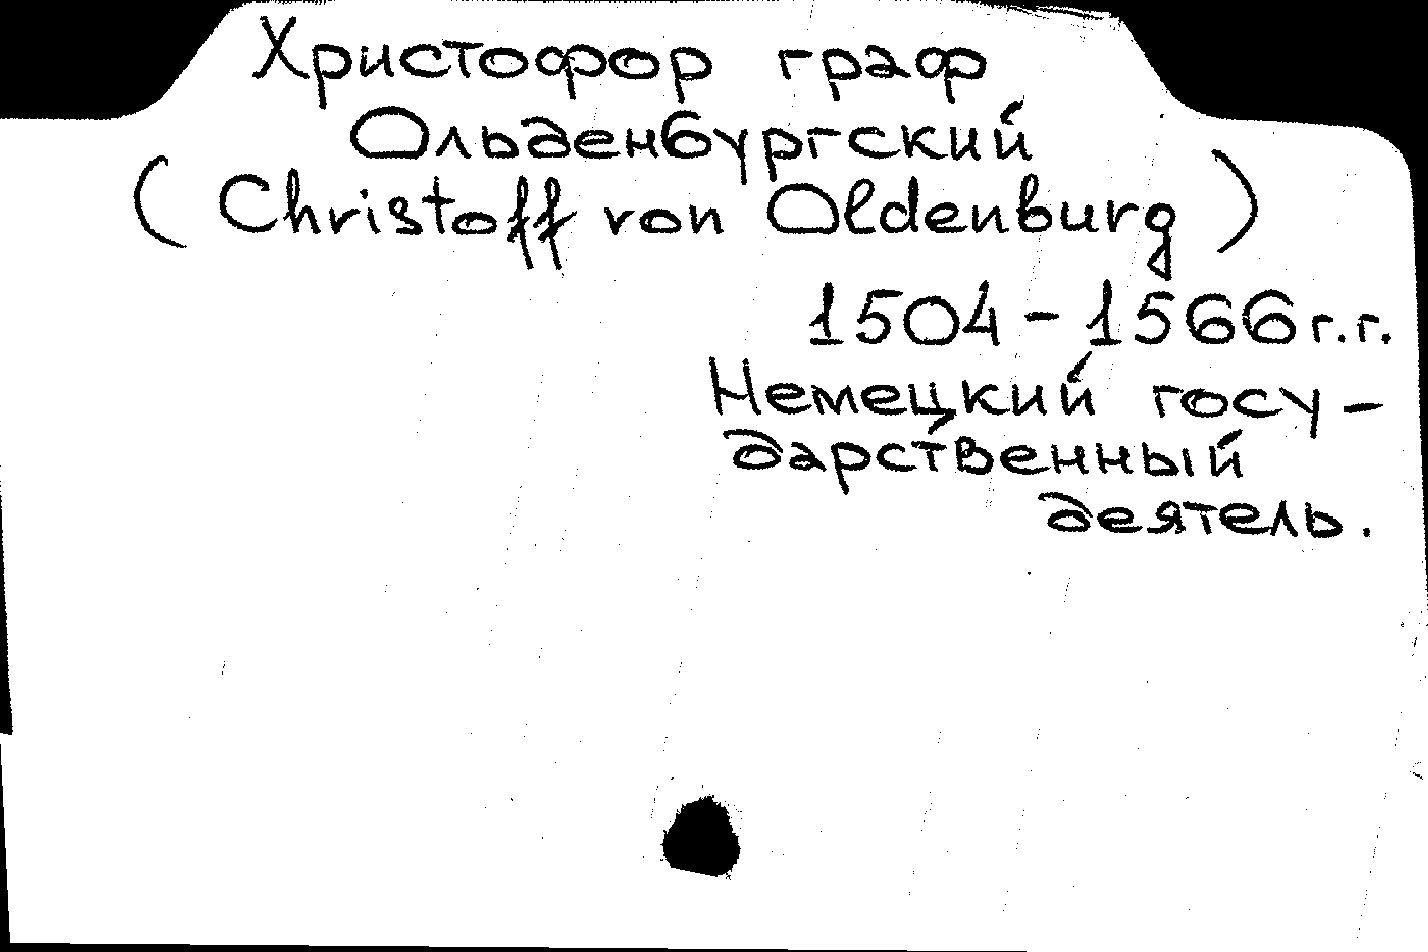 Христофор граф
Ольденбургский
(Christoff von Oldenburg)
1504-1566г.г.
Немецкий госу-
дарственный
деятель.